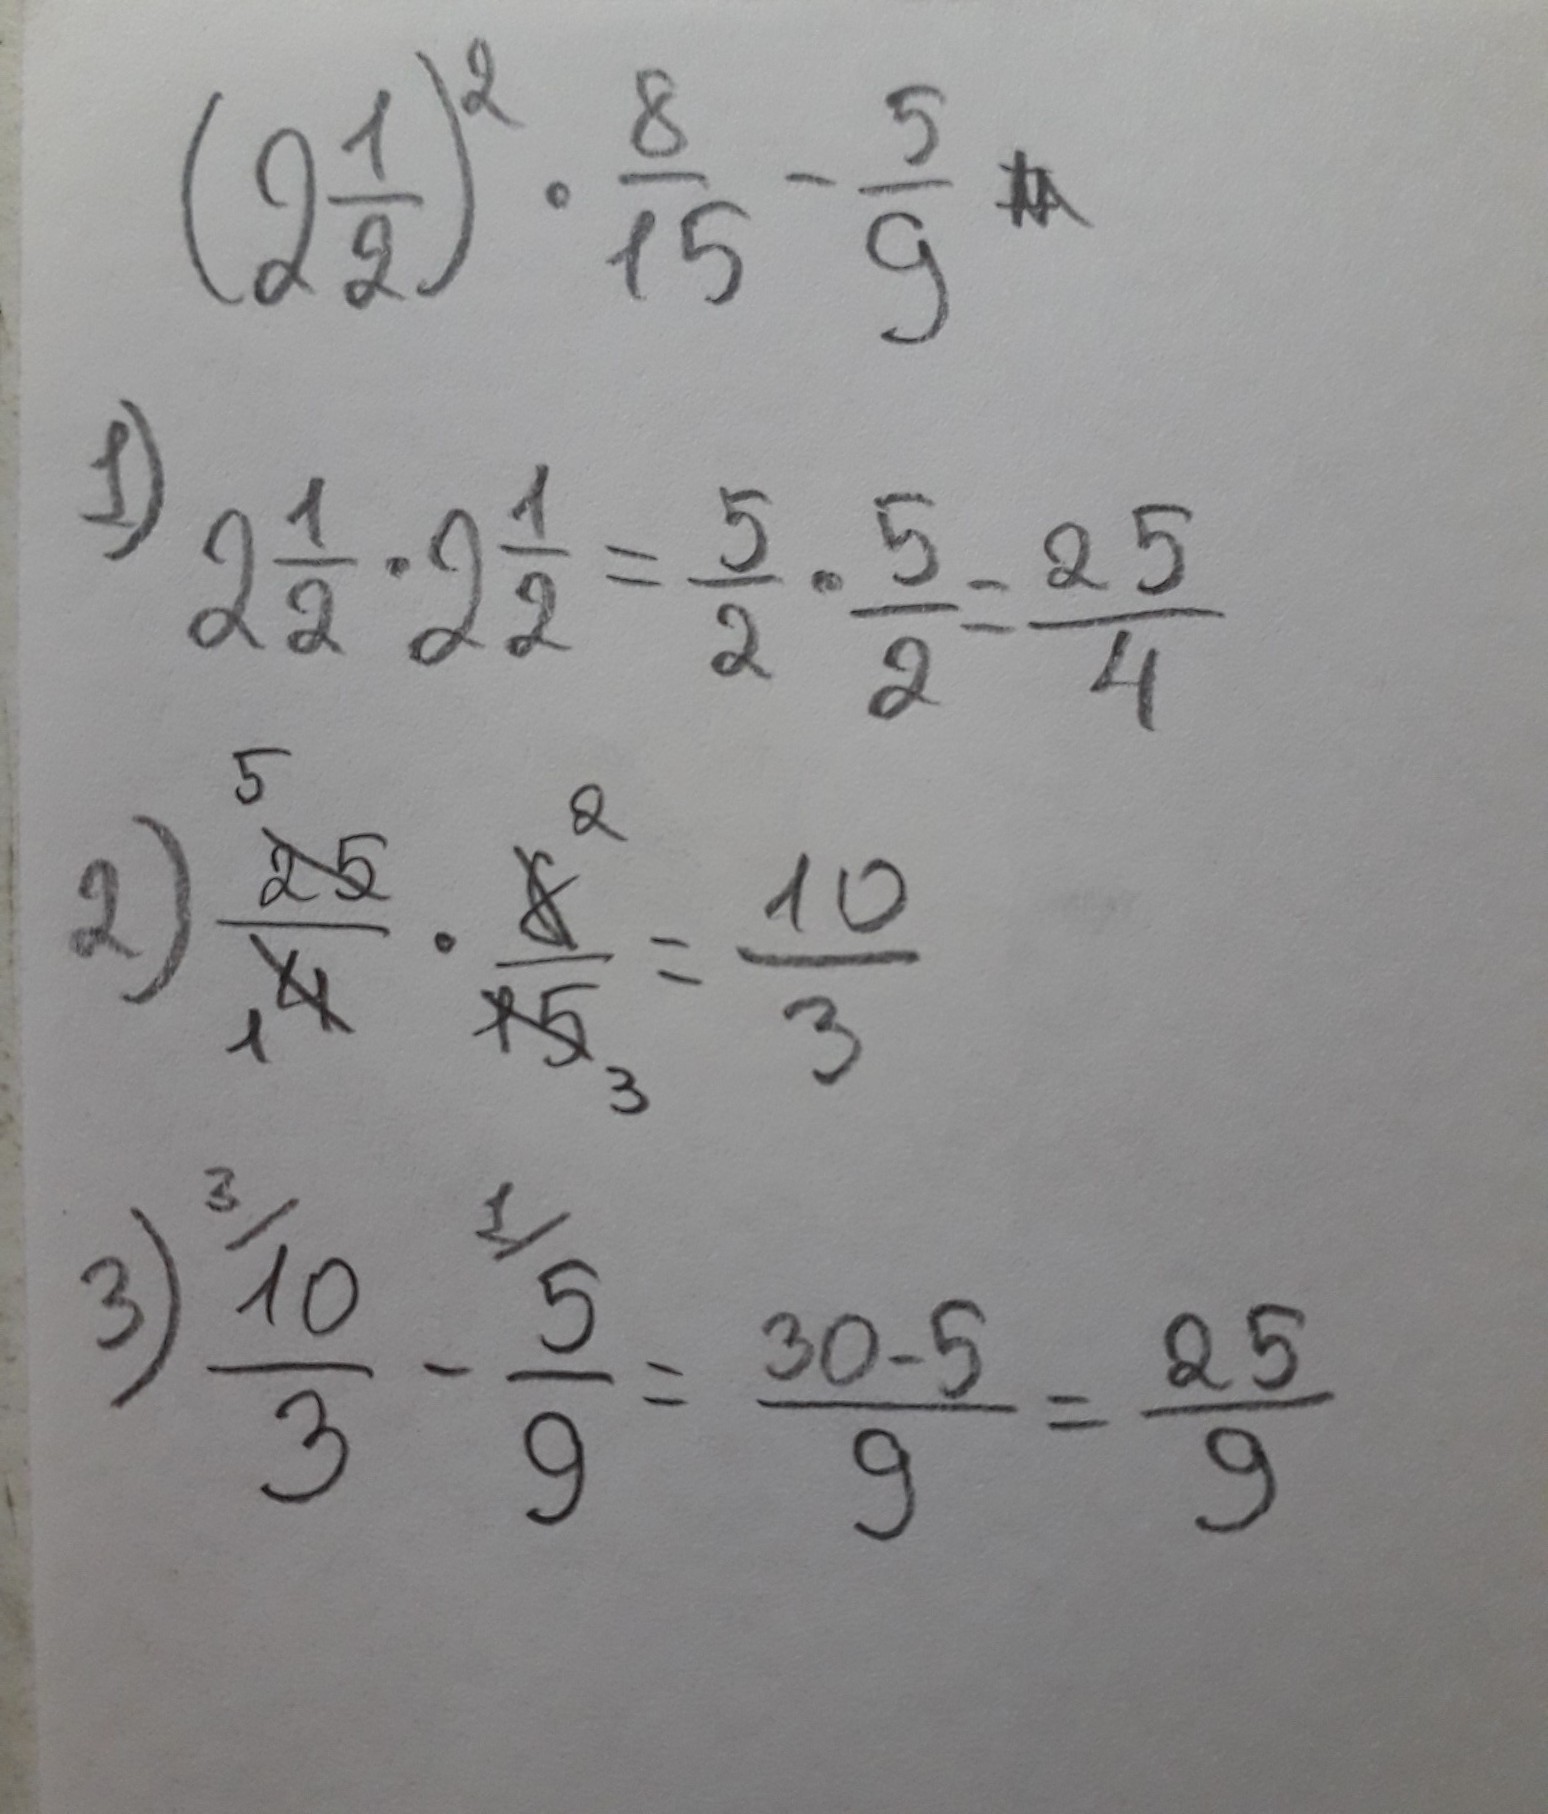 (2 1/2)² · 8/15 - 5/9
1) 2 1/2 · 2 1/2 = 5/2 · 5/2 = 25/4
2) ⁵25/₁4 · 8²/15₃ = 10/3
3) ³⁄10/3 - ¹⁄5/9 = 30-5/9 = 25/9